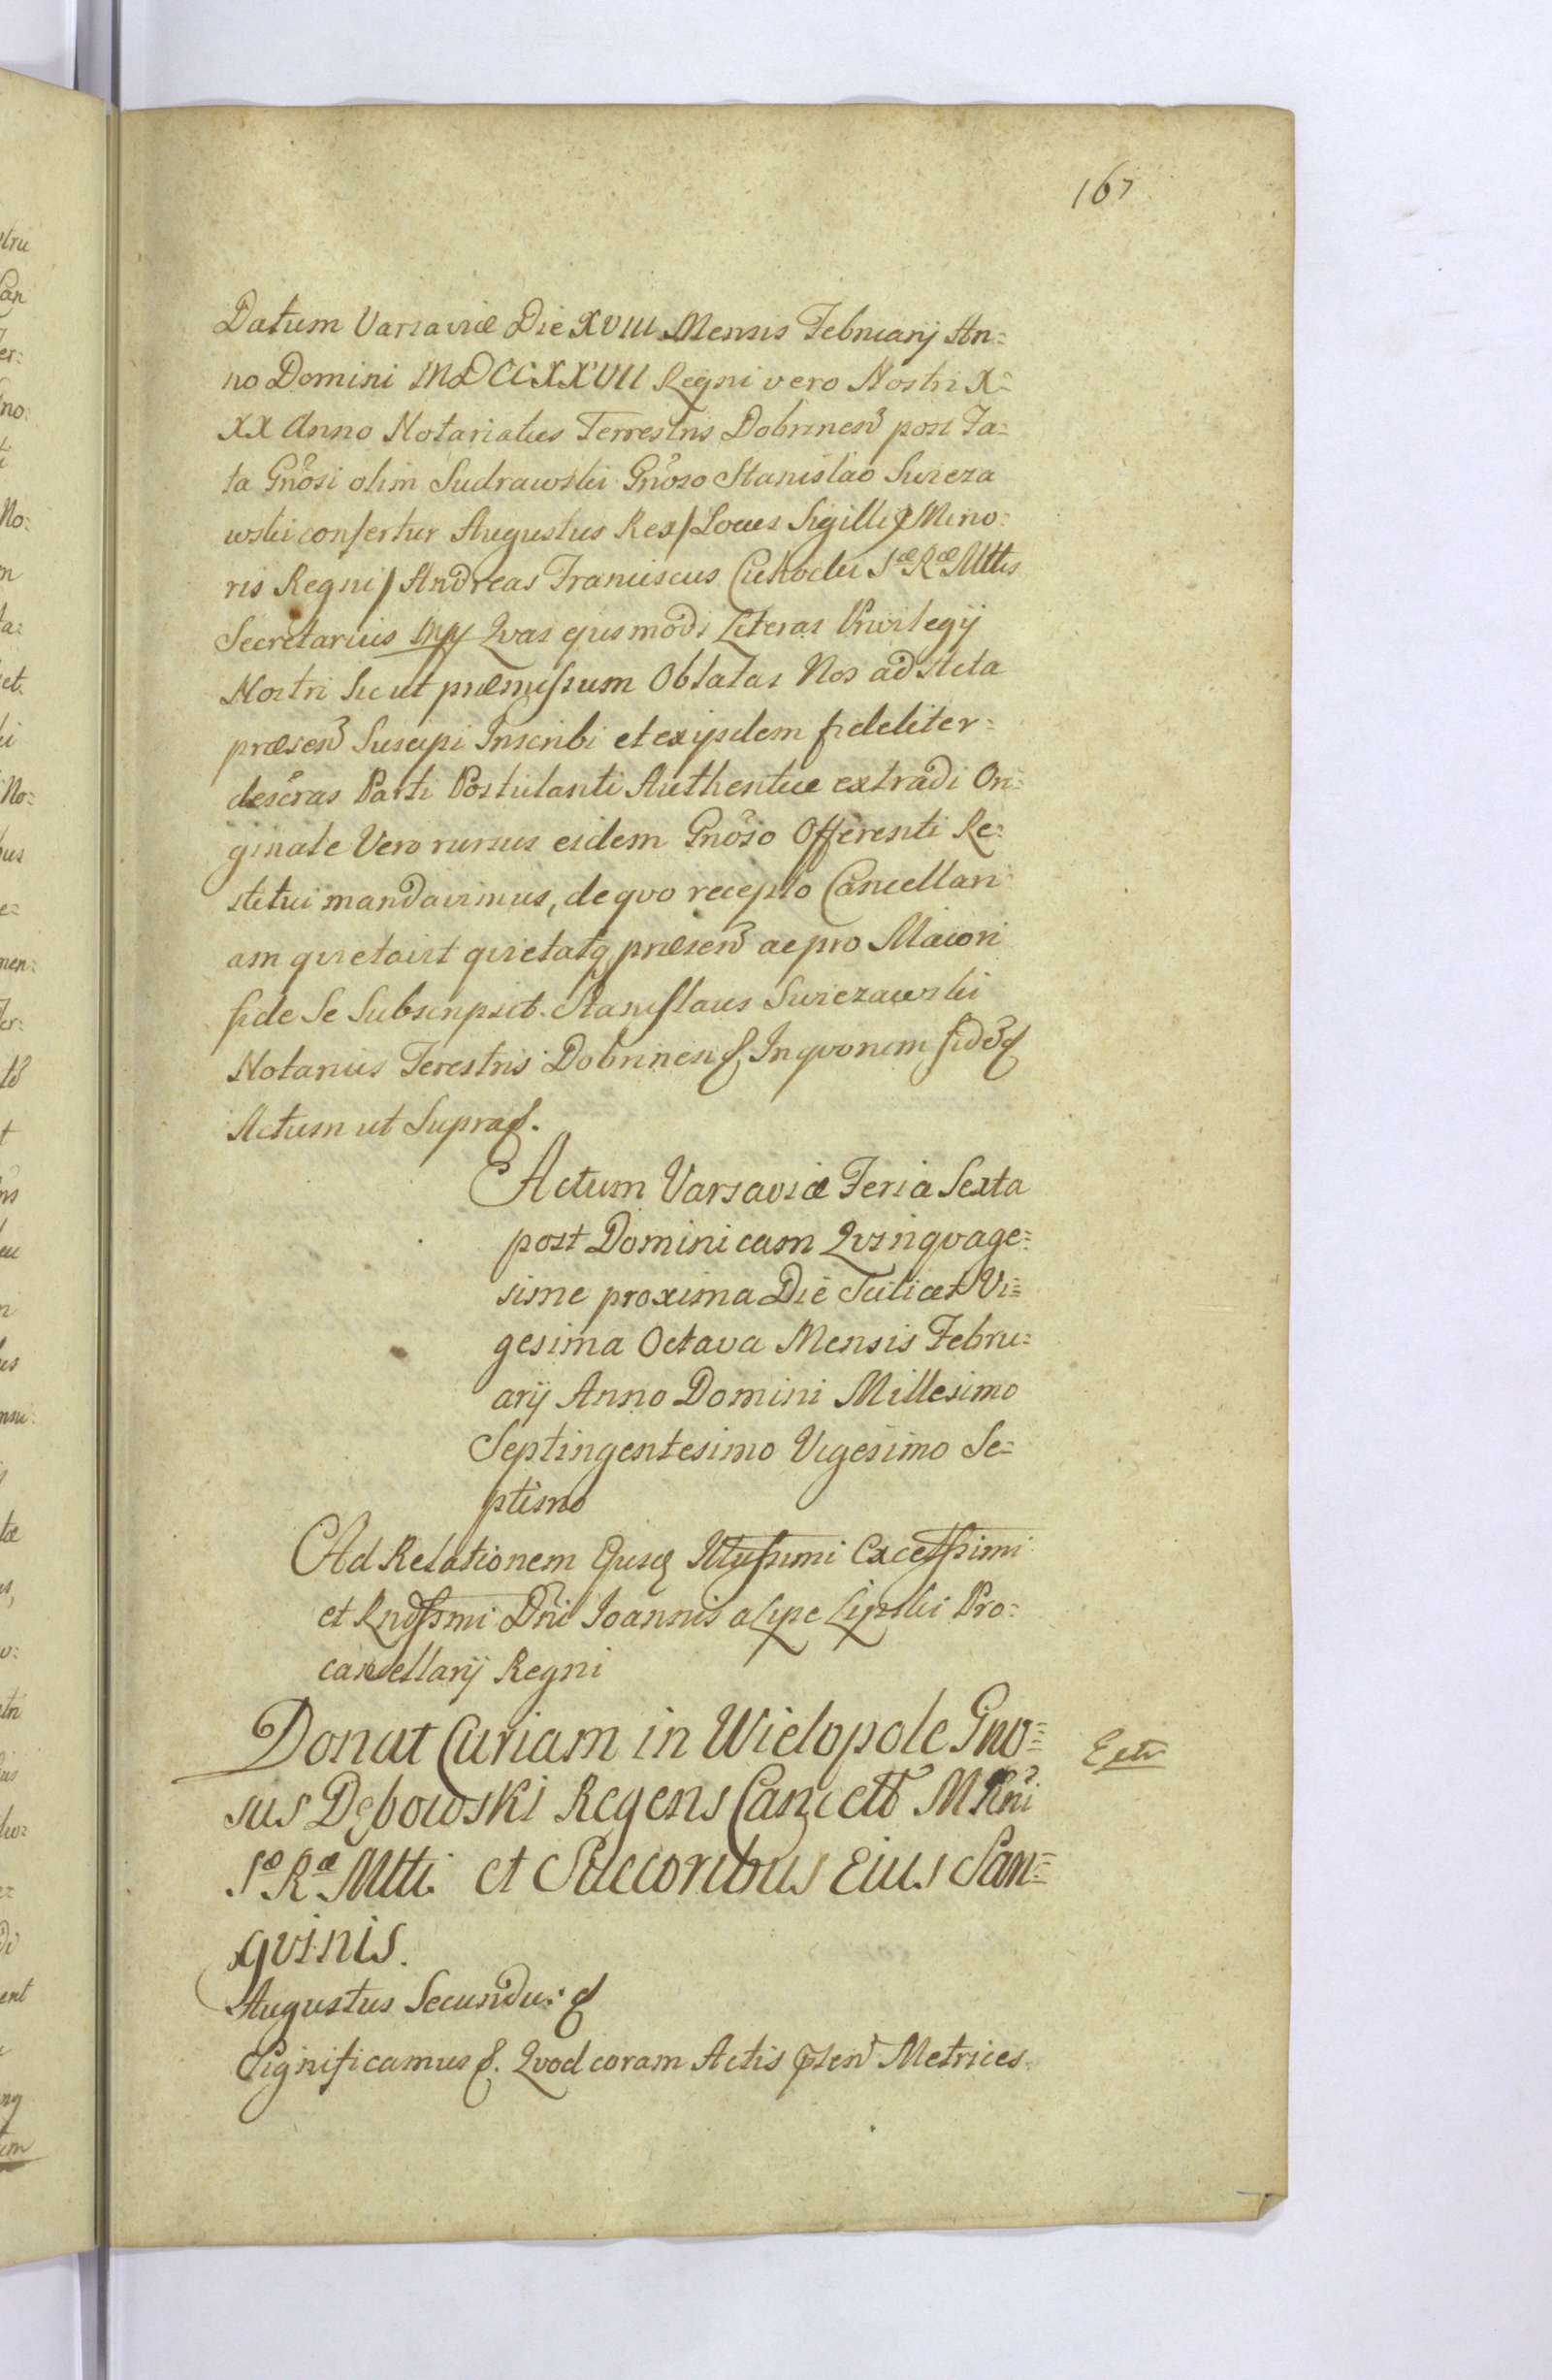 167
Datum Varsaviæ Die XVIII Mensis Februarij An=
no Domini MDCCXXVII Regni vero Nostri X=
XX Anno Notariatus Terrestris Dobrinen̄ post Fa=
ta Gnosi olim Sudrawski Gnoso Stanislao Swieza
wski confertur Augustus Rex / Locus Sigilli Mino=
ris Regni / Andreas Franciscus Cichocki Sæ Ræ Mttis
Secretarius mp Qvas ejusmodi Literas Privilegij
Nostri Sic ut præmissum Oblatas Nos ad Acta
præsen̄ Suscipi Inscribi et exijsdem fideliter=
descras Parti Postulanti Authentice extradi Ori=
ginale Vero rursus eidem Gnoso Offerenti Re=
stitui mandavimus, de qvo recepto Cancellari
am qvietavit qvietatq præsen̄ ac pro Maiori
fide Se Subscripsit. Stanislaus Swiezawski
Notarius Terestris Dobrinen &. In qvorum fidē &
Actum ut Supra &.
Actum Varsaviæ Feria Sexta
post Dominicam Qvinqvage=
sime proxima Die Scilicet Vi=
gesima Octava Mensis Febru=
arij Anno Domini Millesimo
Septingentesimo Vigesimo Se=
ptimo
Ad Relationem Ejusq Illussimi Excellssimi
et Rndssmi Dni Joannis a Lipe Lipski Pro=
cancellarij Regni
Donat Curiam in Wielopole Gno=
sus Dębowski Regens Cancell M Rni
Sæ Ræ Mtti et Succoribus Eius San=
gvinis.
Augustus Secundus &
Significamus &. Qvod coram Actis præsen Metrices